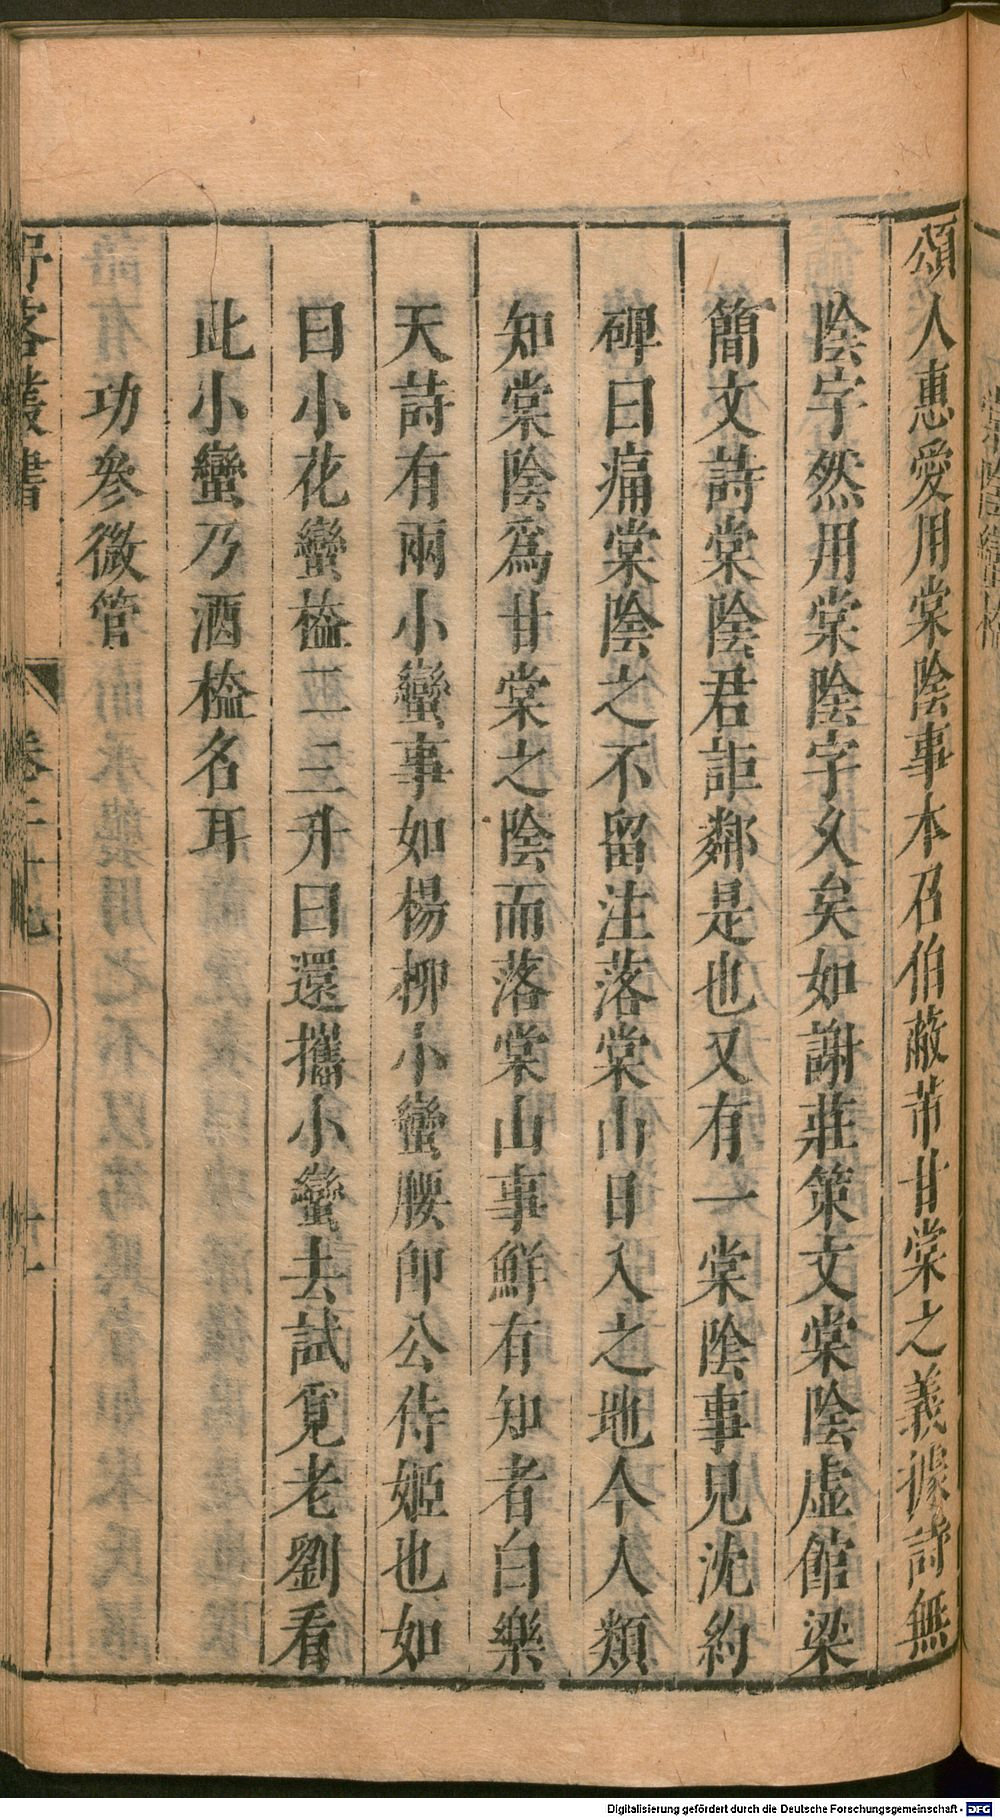 頌人惠愛用棠陰事本召伯蔽芾甘棠之義據詩無
陰字然用棠陰字乆矣如謝莊策文棠陰虚館梁
簡文詩棠陰君詎鄰是也又有一棠陰事見沈約
碑曰痛棠陰之不留注落棠山日入之地今人類
知棠陰爲甘棠之陰而落棠山事鮮有知者白樂
天詩有兩小蠻事如楊柳小蠻腰卽公侍姬也如
曰小花蠻榼二三升曰還攜小蠻去試覓老劉看
此小蠻乃酒榼名耳
功參微管
野客叢書
卷二十九
十一
Digitalisierung gefördert durch die Deutsche Forschungsgemeinschaft - DFG